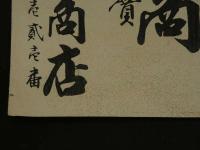 商
賣
商店
壱貳壱番